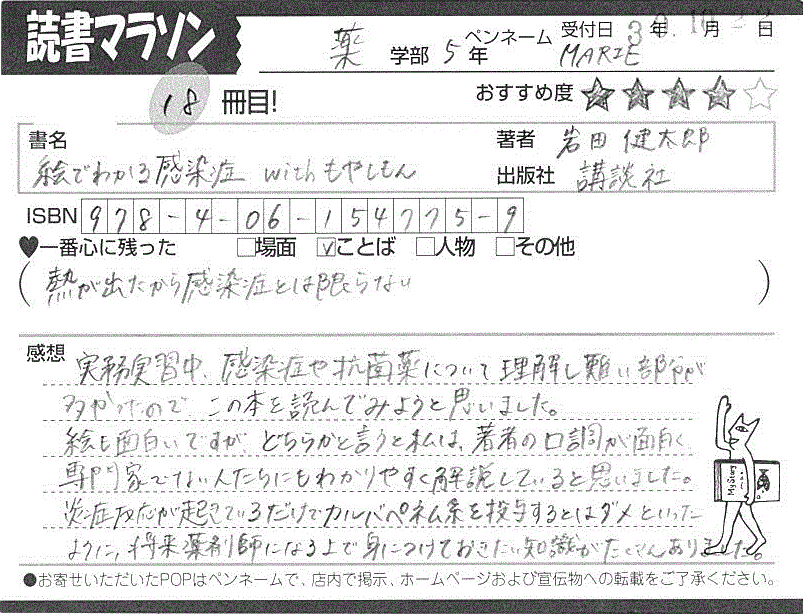 読書マラソン
薬 学部 5 年
ペンネーム MARIE
受付日 3 年 10 月 日
18 冊目!
おすすめ度 ★★★★☆
書名 絵でわかる感染症 withもやしもん
著者 岩田健太郎
出版社 講談社
ISBN 978-4-06-154775-9
♥一番心に残った □場面 ☑ことば □人物 □その他
(熱が出たから感染症とは限らない)
感想
実務実習中、感染症や抗菌薬について理解し難い部分が
多かったので、この本を読んでみようと思いました。
絵も面白いですが、どちらかと言うと私は、著者の口調が面白く
専門家でない人たちにもわかりやすく解説していると思いました。
炎症反応が起きているだけでカルバペネム系を投与するとはダメといった
ように、将来薬剤師になる上で身につけておきたい知識がたくさんありました。
My Story
●お寄せいただいたPOPはペンネームで、店内で掲示、ホームページおよび宣伝物への転載をご了承ください。